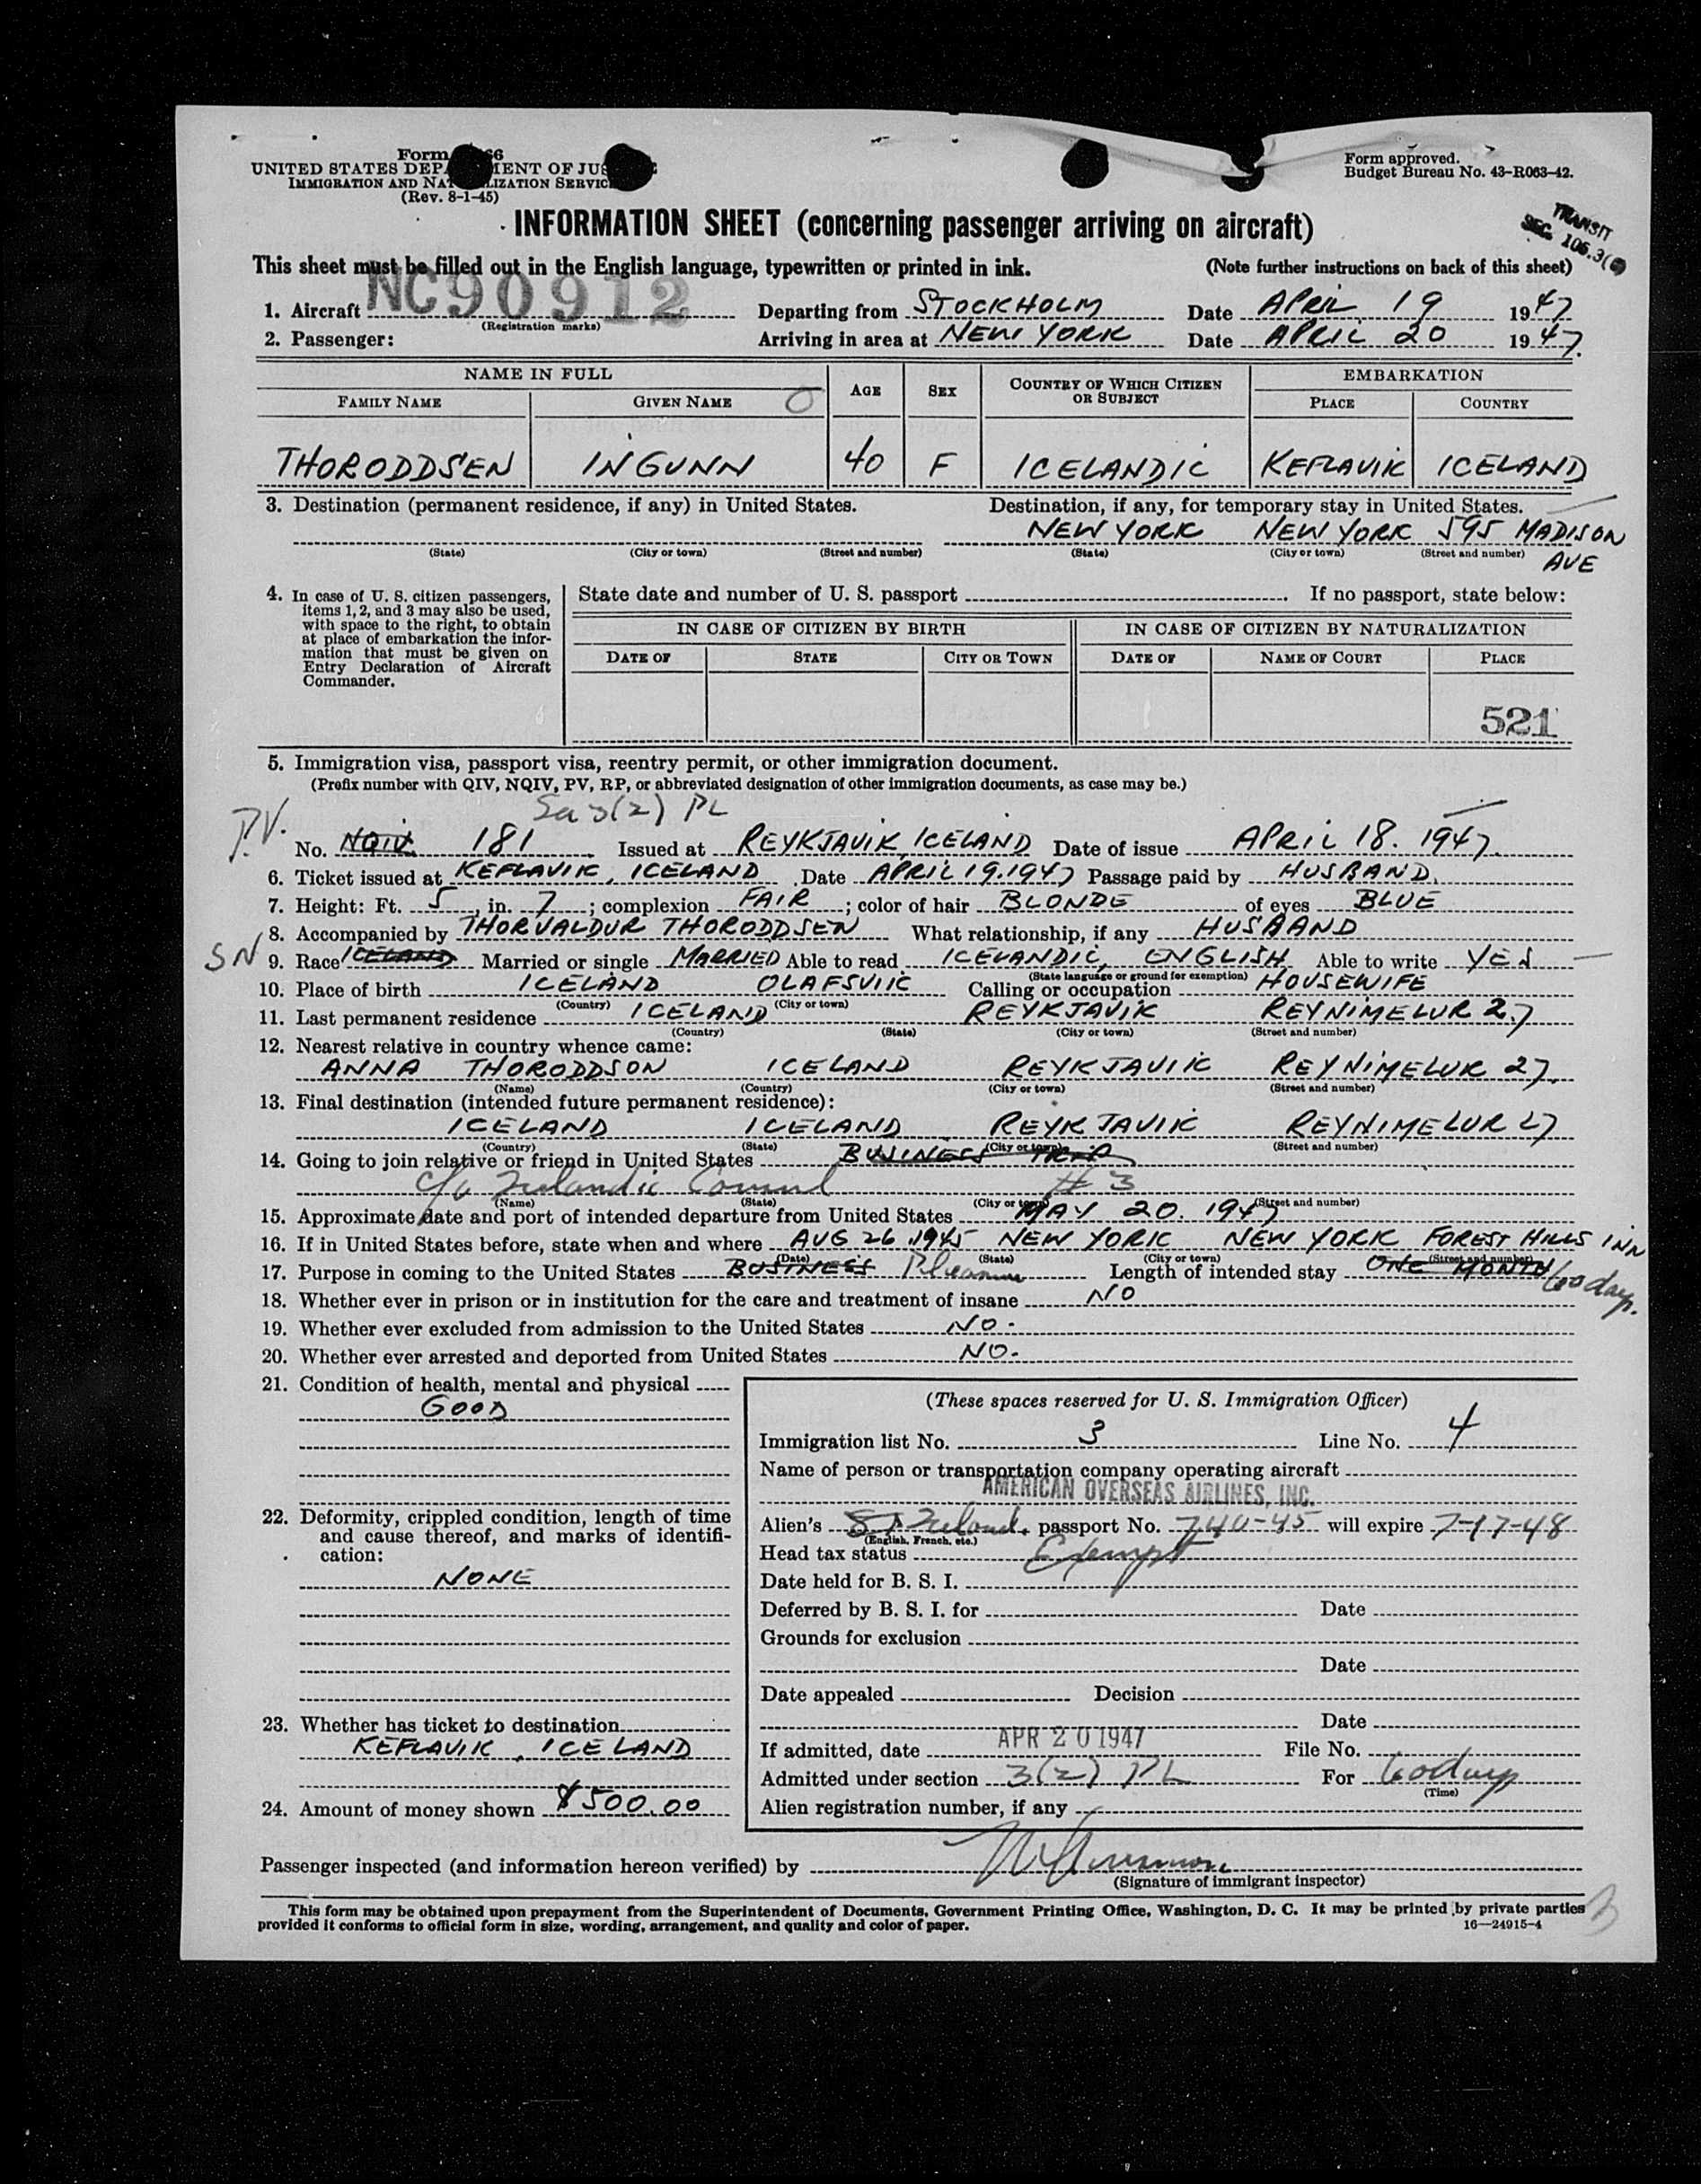 Form 66
UNITED STATES DEPA MENT OF JUS
IMMIGRATION AND NAT LIZATION SERVIC
(Rev. 8-1-45)
Form approved.
Budget Bureau No. 43-R063-42.
INFORMATION SHEET (concerning passenger arriving on aircraft)
TRANSIT
SEC. 106.3(
This sheet must be filled out in the English language, typewritten or printed in ink. (Note further instructions on back of this sheet)
1. Aircraft NC90912 Departing from STOCKHOLM Date APRIL 19 1947
(Registration marks)
2. Passenger: Arriving in area at NEW YORK Date APRIL 20 1947.
NAME IN FULL AGE SEX COUNTRY OF WHICH CITIZEN OR SUBJECT EMBARKATION
FAMILY NAME GIVEN NAME PLACE COUNTRY
THORODDSEN INGUNN 40 F ICELANDIC KEFLAVIK ICELAND
3. Destination (permanent residence, if any) in United States. Destination, if any, for temporary stay in United States.
NEW YORK NEW YORK 595 MADISON AVE
(State) (City or town) (Street and number) (State) (City or town) (Street and number)
4. In case of U. S. citizen passengers, items 1, 2, and 3 may also be used, with space to the right, to obtain at place of embarkation the information that must be given on Entry Declaration of Aircraft Commander.
State date and number of U. S. passport . If no passport, state below:
IN CASE OF CITIZEN BY BIRTH IN CASE OF CITIZEN BY NATURALIZATION
DATE OF STATE CITY OR TOWN DATE OF NAME OF COURT PLACE
521
5. Immigration visa, passport visa, reentry permit, or other immigration document.
(Prefix number with QIV, NQIV, PV, RP, or abbreviated designation of other immigration documents, as case may be.)
3(2) PL
P.V. No. NQIV. 181 Issued at REYKJAVIK, ICELAND Date of issue APRIL 18. 1947.
6. Ticket issued at KEFLAVIK, ICELAND Date APRIL 19.1947 Passage paid by HUSBAND.
7. Height: Ft. 5 in. 7; complexion FAIR; color of hair BLONDE of eyes BLUE
8. Accompanied by THORVALDUR THORODDSEN What relationship, if any HUSBAND
SN 9. Race ICELAND Married or single MARRIED Able to read ICELANDIC, ENGLISH Able to write YES
(State language or ground for exemption)
10. Place of birth ICELAND OLAFSVIIC Calling or occupation HOUSEWIFE
(Country) (City or town)
11. Last permanent residence ICELAND REYKJAVIK REYNIMELUR 27
(Country) (State) (City or town) (Street and number)
12. Nearest relative in country whence came:
ANNA THORODDSON ICELAND REYKJAVIK REYNIMELUR 27.
(Name) (Country) (City or town) (Street and number)
13. Final destination (intended future permanent residence):
ICELAND ICELAND REYKJAVIK REYNIMELUR 27
(Country) (State) (City or town) (Street and number)
14. Going to join relative or friend in United States BUSINESS TRIP
c/o Icelandic Consul #3
(Name) (State) (City or town) (Street and number)
15. Approximate date and port of intended departure from United States MAY 20. 1947
16. If in United States before, state when and where AUG 26.1945 NEW YORK NEW YORK FOREST HILLS INN
(Date) (State) (City or town) (Street and number)
17. Purpose in coming to the United States BUSINESS Pleasure Length of intended stay ONE MONTH 60 days.
18. Whether ever in prison or in institution for the care and treatment of insane NO
19. Whether ever excluded from admission to the United States NO.
20. Whether ever arrested and deported from United States NO.
21. Condition of health, mental and physical
GOOD
22. Deformity, crippled condition, length of time and cause thereof, and marks of identification:
NONE
23. Whether has ticket to destination
KEFLAVIK, ICELAND
24. Amount of money shown $500.00
(These spaces reserved for U. S. Immigration Officer)
Immigration list No. 3 Line No. 4
Name of person or transportation company operating aircraft
AMERICAN OVERSEAS AIRLINES, INC.
Alien's Iceland. passport No. 740-45 will expire 7-17-48
(English, French, etc.)
Head tax status Exempt
Date held for B. S. I.
Deferred by B. S. I. for Date
Grounds for exclusion
Date
Date appealed Decision
Date
If admitted, date APR 20 1947 File No.
Admitted under section 3(2) PL For 60 days
(Time)
Alien registration number, if any
Passenger inspected (and information hereon verified) by
(Signature of immigrant inspector)
This form may be obtained upon prepayment from the Superintendent of Documents, Government Printing Office, Washington, D. C. It may be printed by private parties
provided it conforms to official form in size, wording, arrangement, and quality and color of paper. 16—24915-4
3